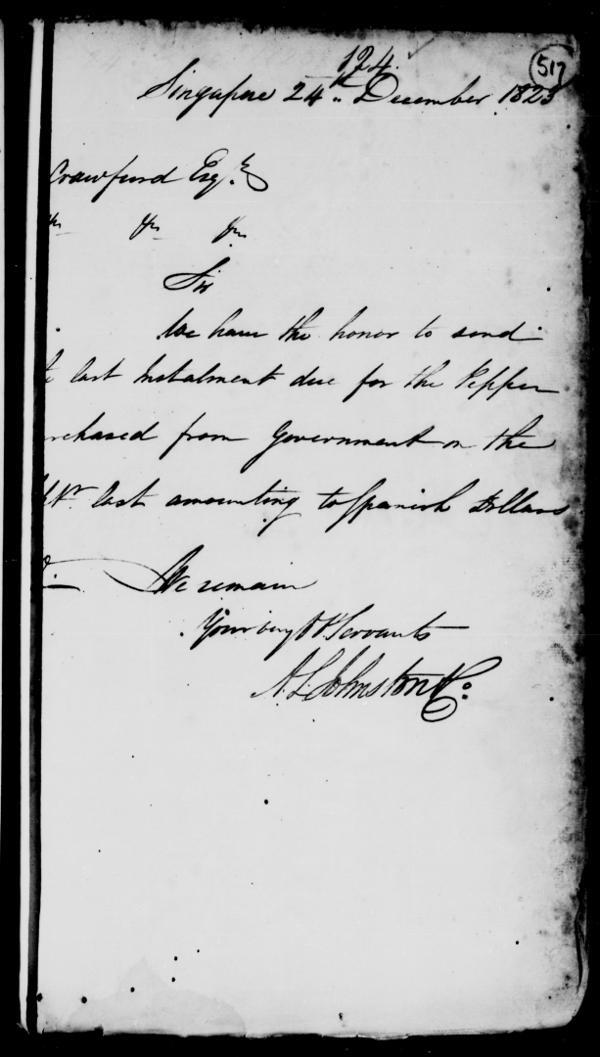 124.
517
Singapore 24th December 1823
Crawfurd Esqr.
&c &c
Sir
We have the honor to send
last Instalment due for the Pepper
rchased from Government on the
last amounting to Spanish Dollars
We remain
Your very Ob Servants
A. L. Johnston & Co.